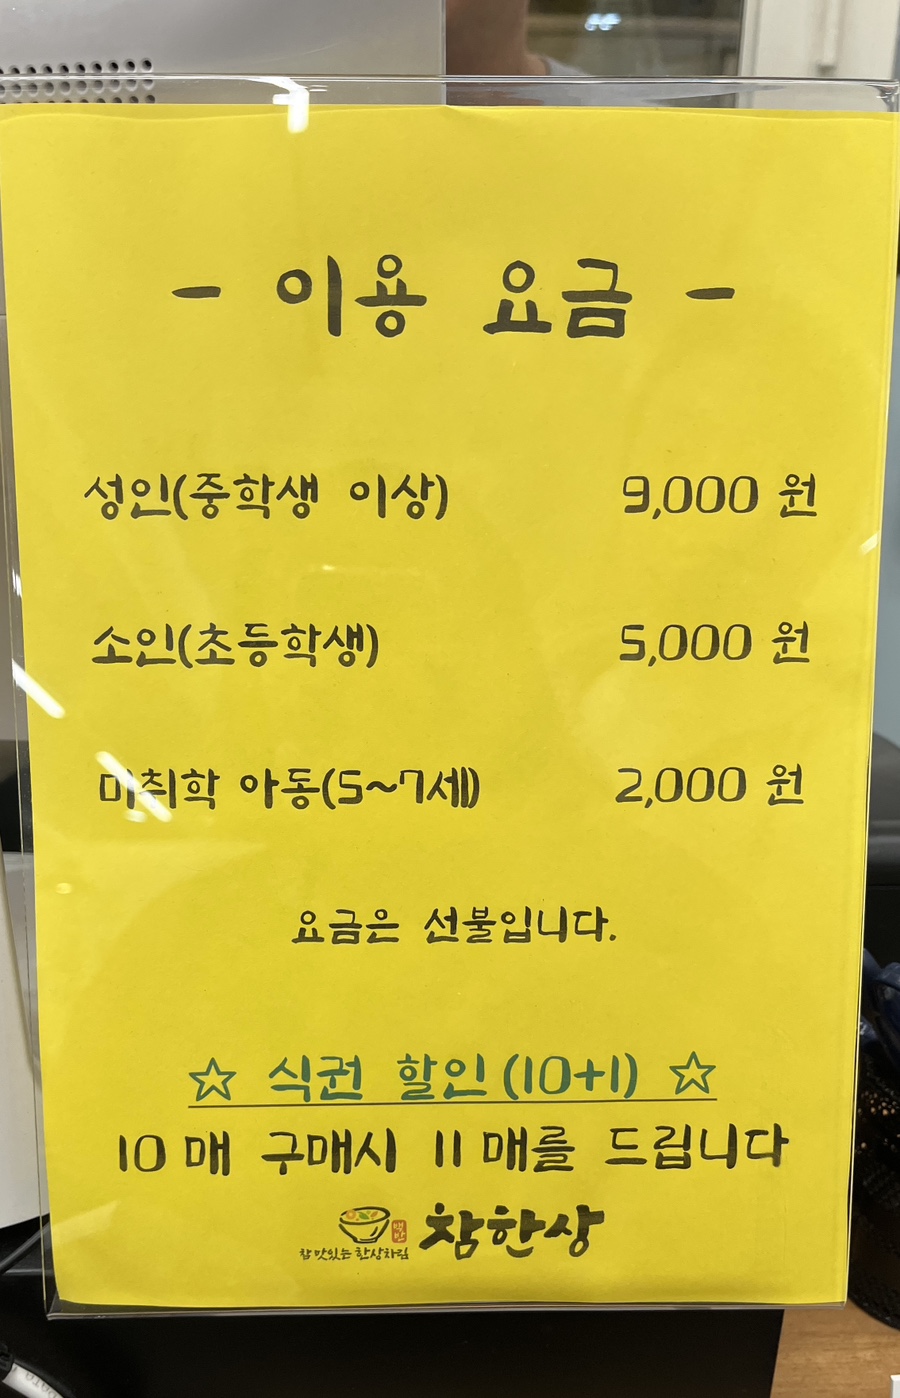 - 이용 요금 -
성인(중학생 이상) 9,000 원
소인(초등학생) 5,000 원
미취학 아동(5~7세) 2,000 원
요금은 선불입니다.
☆ 식권 할인(10+1) ☆
10매 구매시 11매를 드립니다
백반
참 맛있는 한상차림
참한상